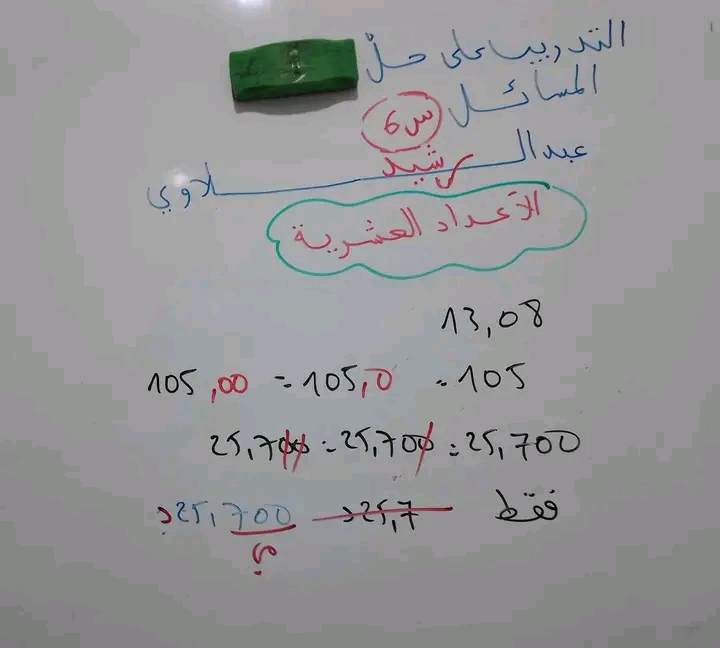 التدريب على حلّ
المسائل س6
عبدالرشيد سلاوي
الأعداد العشرية
13,08
105,00 = 105,0 = 105
25,700 = 25,700 = 25,700
د25,700 د25,7 فقط
؟